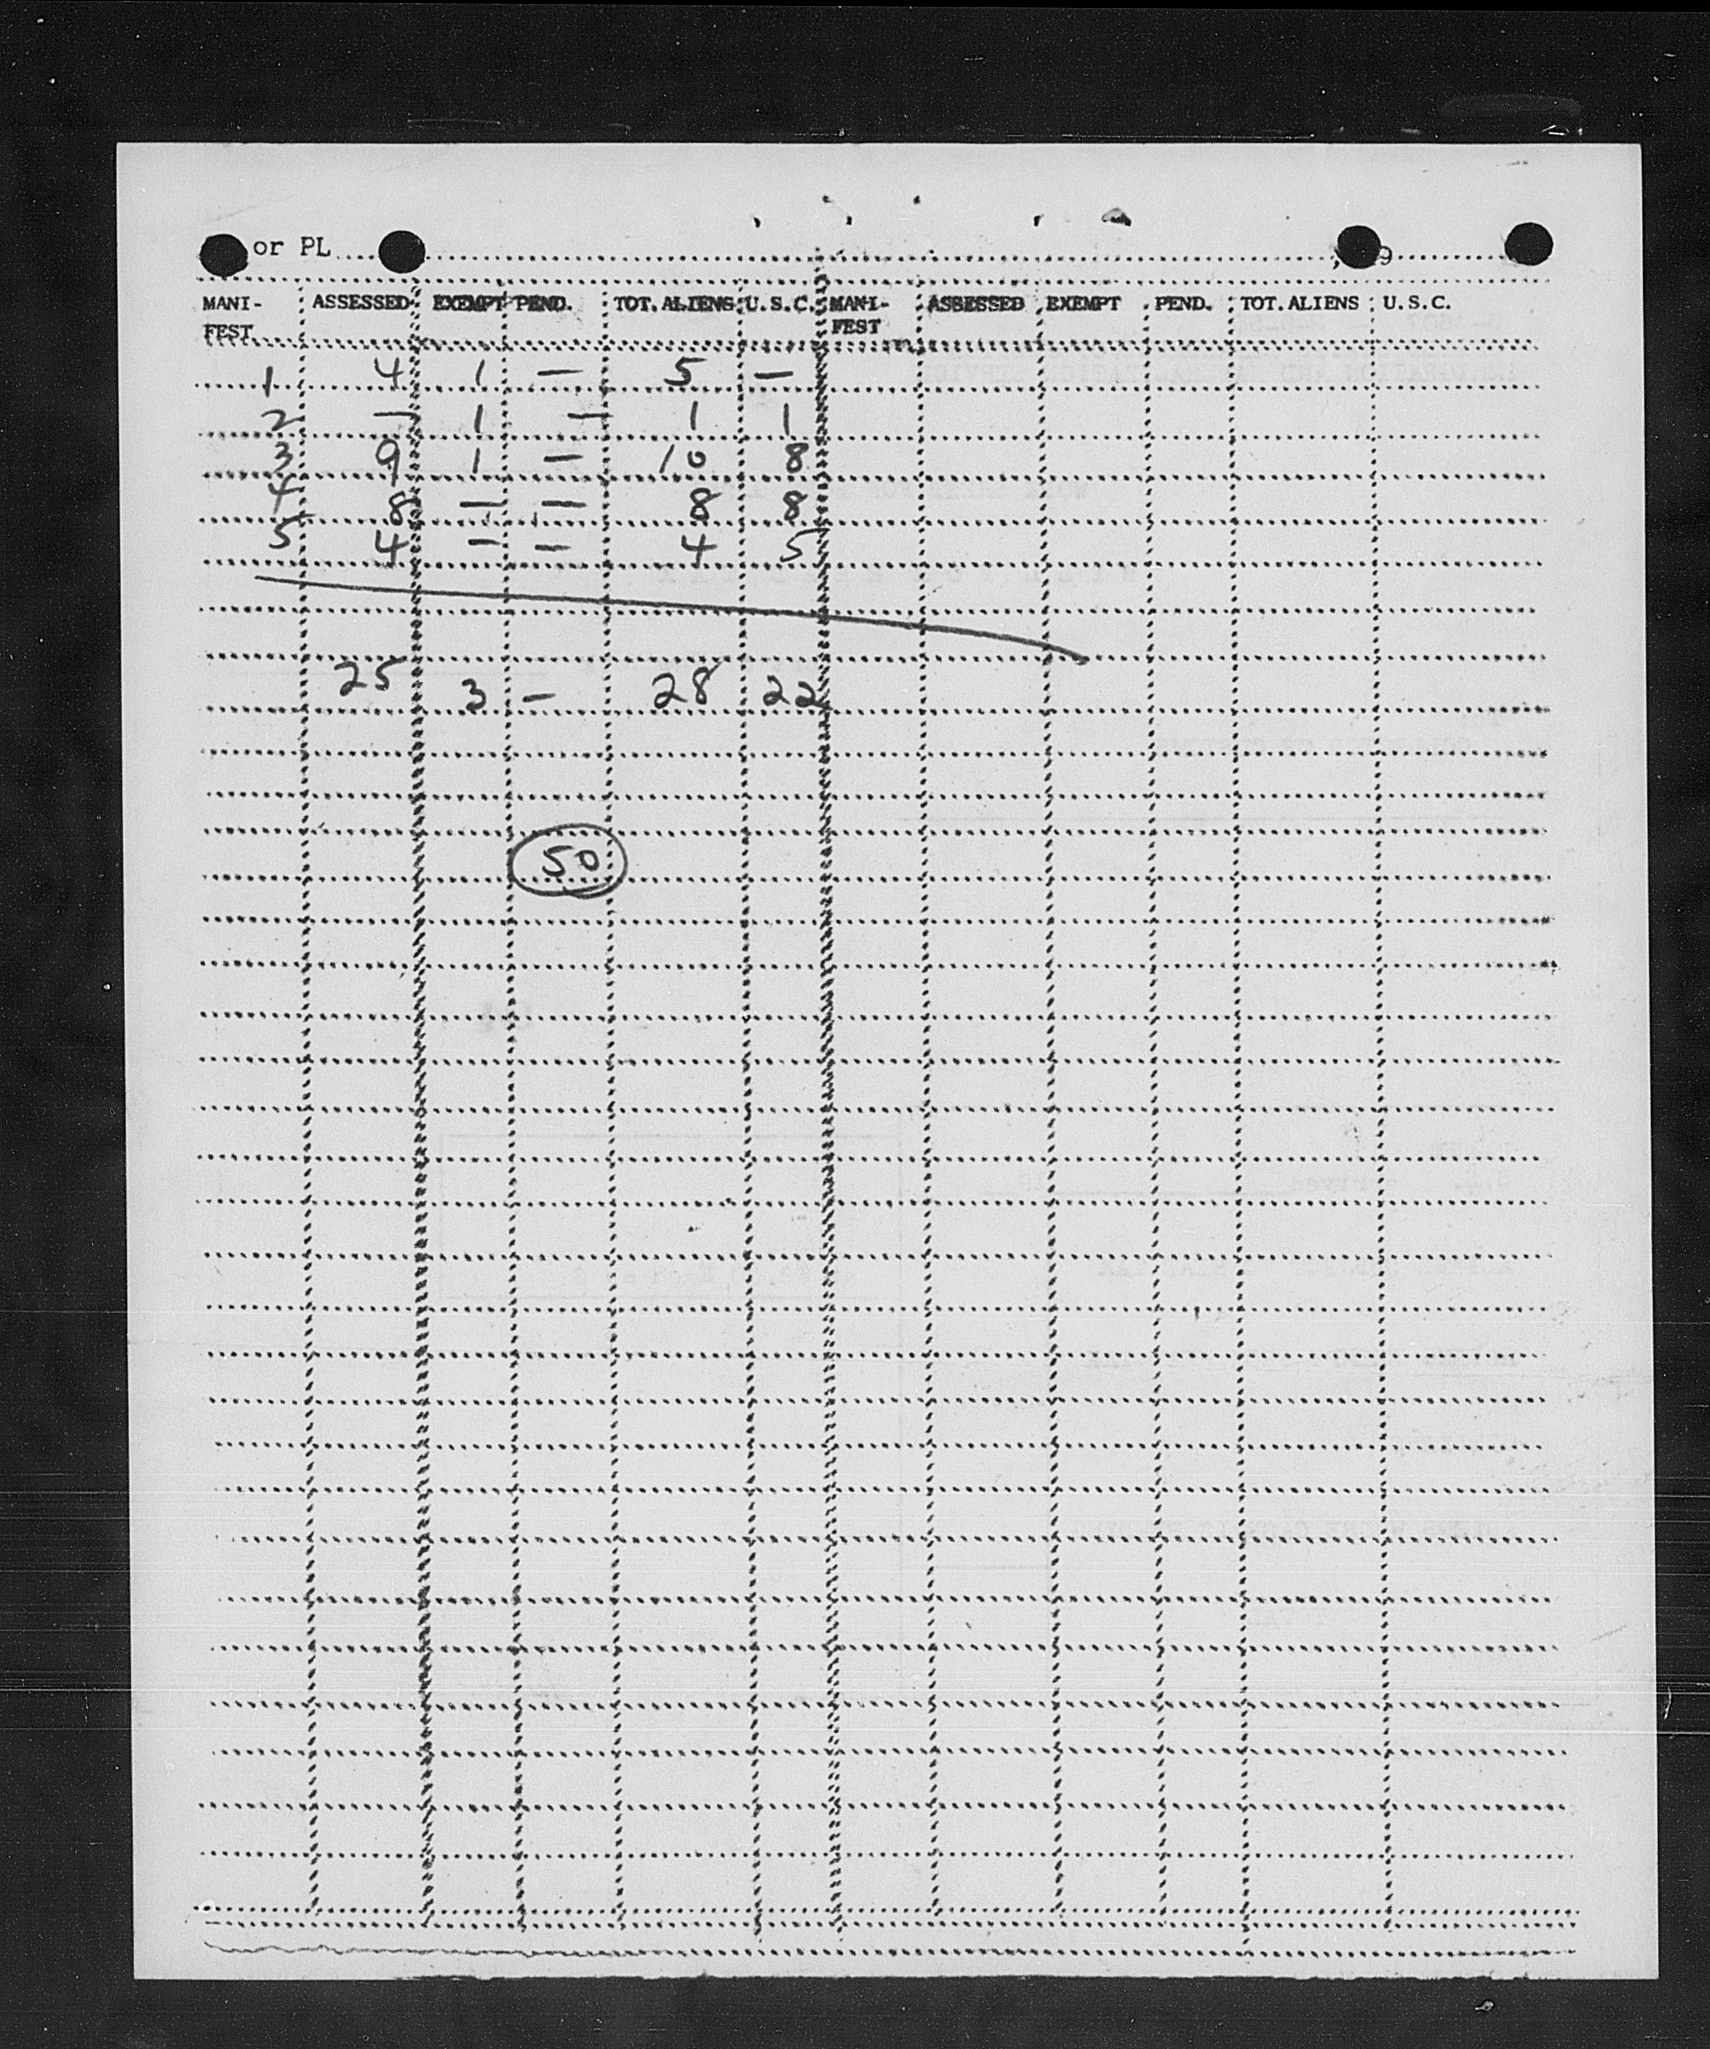 or PL , 9
MANI- ASSESSED EXEMPT PEND. TOT. ALIENS U.S.C. MANI- ASSESSED EXEMPT PEND. TOT. ALIENS U.S.C.
FEST FEST
1 4 1 — 5 —
2 — 1 — 1 1
3 9 1 — 10 8
4 8 — — 8 8
5 4 — — 4 5
25 3 — 28 22
50